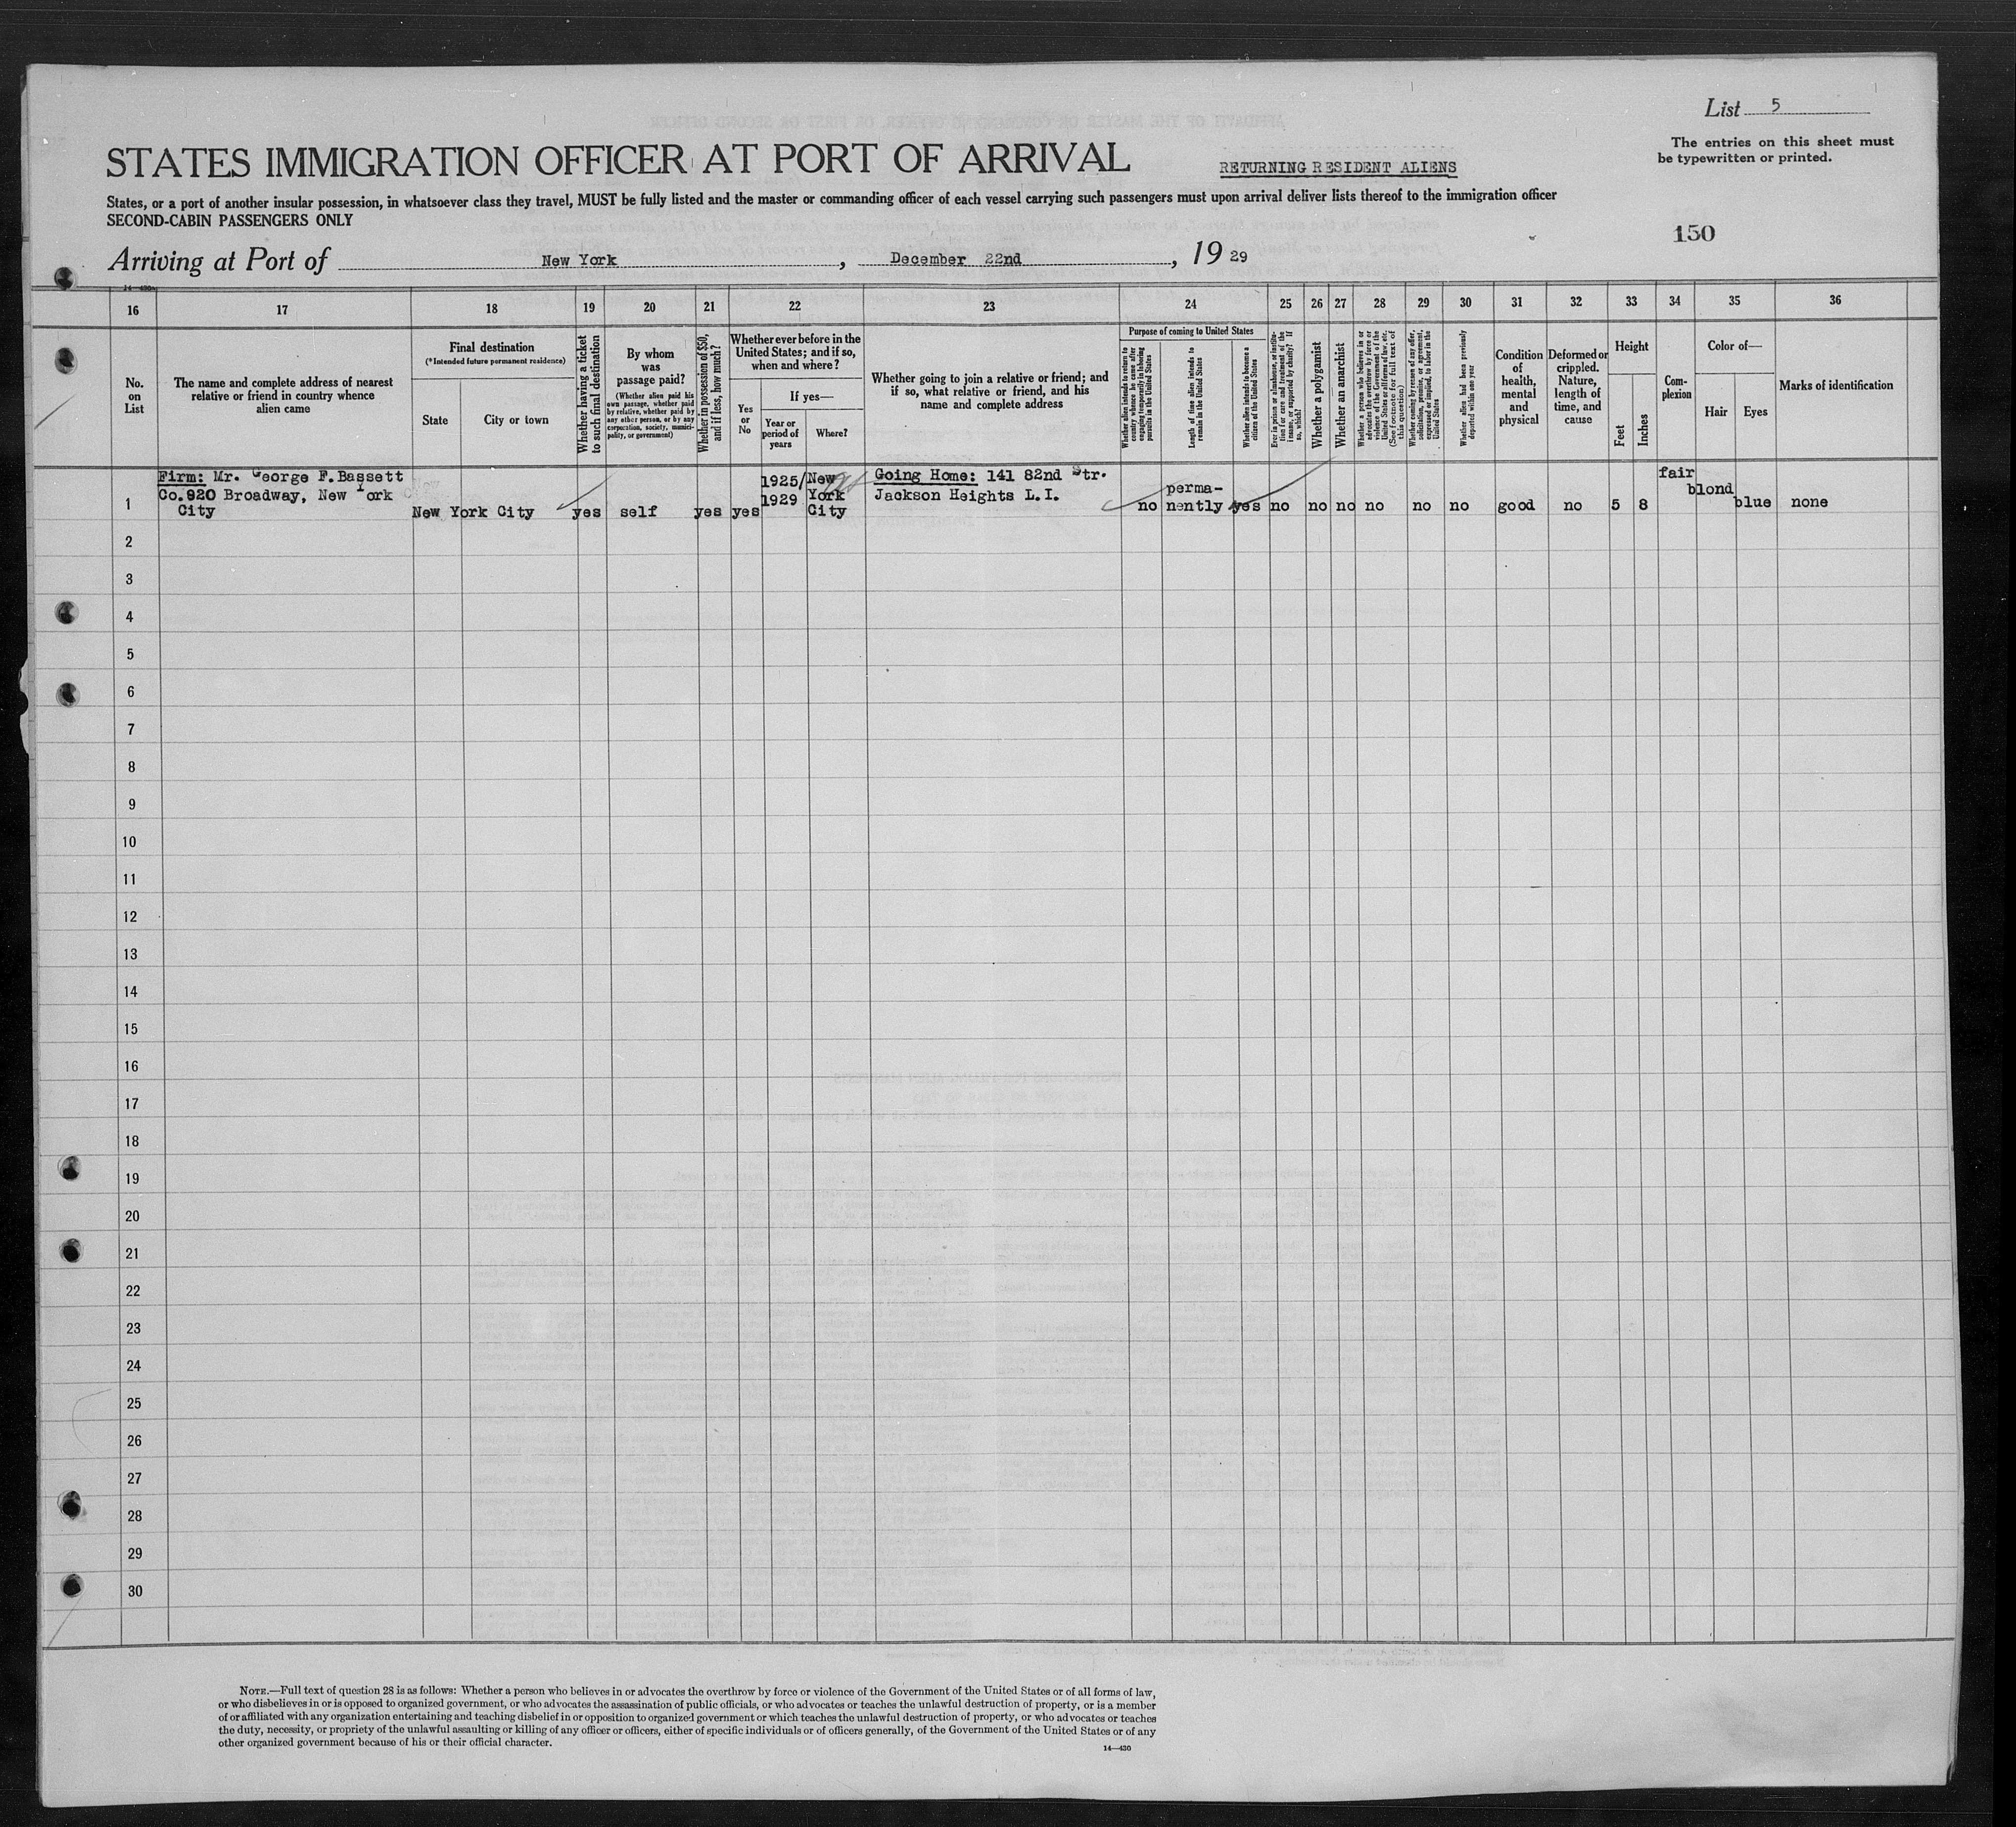 List 5
The entries on this sheet must
be typewritten or printed.
STATES IMMIGRATION OFFICER AT PORT OF ARRIVAL
RETURNING RESIDENT ALIENS
States, or a port of another insular possession, in whatsoever class they travel, MUST be fully listed and the master or commanding officer of each vessel carrying such passengers must upon arrival deliver lists thereof to the immigration officer
SECOND-CABIN PASSENGERS ONLY
150
Arriving at Port of New York, December 22nd, 1929
14—430
16 17 18 19 20 21 22 23 24 25 26 27 28 29 30 31 32 33 34 35 36
No.
on
List
The name and complete address of nearest
relative or friend in country whence
alien came
Final destination
(*Intended future permanent residence)
State
City or town
Whether having a ticket
to such final destination
By whom
was
passage paid?
(Whether alien paid his
own passage, whether paid
by relative, whether paid by
any other person, or by any
corporation, society, munici-
pality, or government)
Whether in possession of $50,
and if less, how much?
Whether ever before in the
United States; and if so,
when and where?
Yes
or
No
If yes—
Year or
period of
years
Where?
Whether going to join a relative or friend; and
if so, what relative or friend, and his
name and complete address
Purpose of coming to United States
Whether alien intends to return to
country whence he came after
engaging temporarily in laboring
pursuits in the United States
Length of time alien intends to
remain in the United States
Whether alien intends to become a
citizen of the United States
Ever in prison or almshouse, or institu-
tion for care and treatment of the
insane, or supported by charity? If
so, which?
Whether a polygamist
Whether an anarchist
Whether a person who believes in or
advocates the overthrow by force or
violence of the Government of the
United States or all forms of law, etc.
(See footnote for full text of
this question)
Whether coming by reason of any offer,
solicitation, promise, or agreement,
expressed or implied, to labor in the
United States
Whether alien had been previously
deported within one year
Condition
of
health,
mental
and
physical
Deformed or
crippled.
Nature,
length of
time, and
cause
Height
Feet
Inches
Com-
plexion
Color of—
Hair
Eyes
Marks of identification
1
Firm: Mr. George F. Bassett
Co. 920 Broadway, New York
City
New York City
yes
self
yes
yes
1925/
1929
New
York
City
Going Home: 141 82nd Str.
Jackson Heights L.I.
no
perma-
nently
yes
no
no
no
no
no
no
good
no
5
8
fair
blond
blue
none
2
3
4
5
6
7
8
9
10
11
12
13
14
15
16
17
18
19
20
21
22
23
24
25
26
27
28
29
30
NOTE.—Full text of question 28 is as follows: Whether a person who believes in or advocates the overthrow by force or violence of the Government of the United States or of all forms of law,
or who disbelieves in or is opposed to organized government, or who advocates the assassination of public officials, or who advocates or teaches the unlawful destruction of property, or is a member
of or affiliated with any organization entertaining and teaching disbelief in or opposition to organized government or which teaches the unlawful destruction of property, or who advocates or teaches
the duty, necessity, or propriety of the unlawful assaulting or killing of any officer or officers, either of specific individuals or of officers generally, of the Government of the United States or of any
other organized government because of his or their official character.
14—430